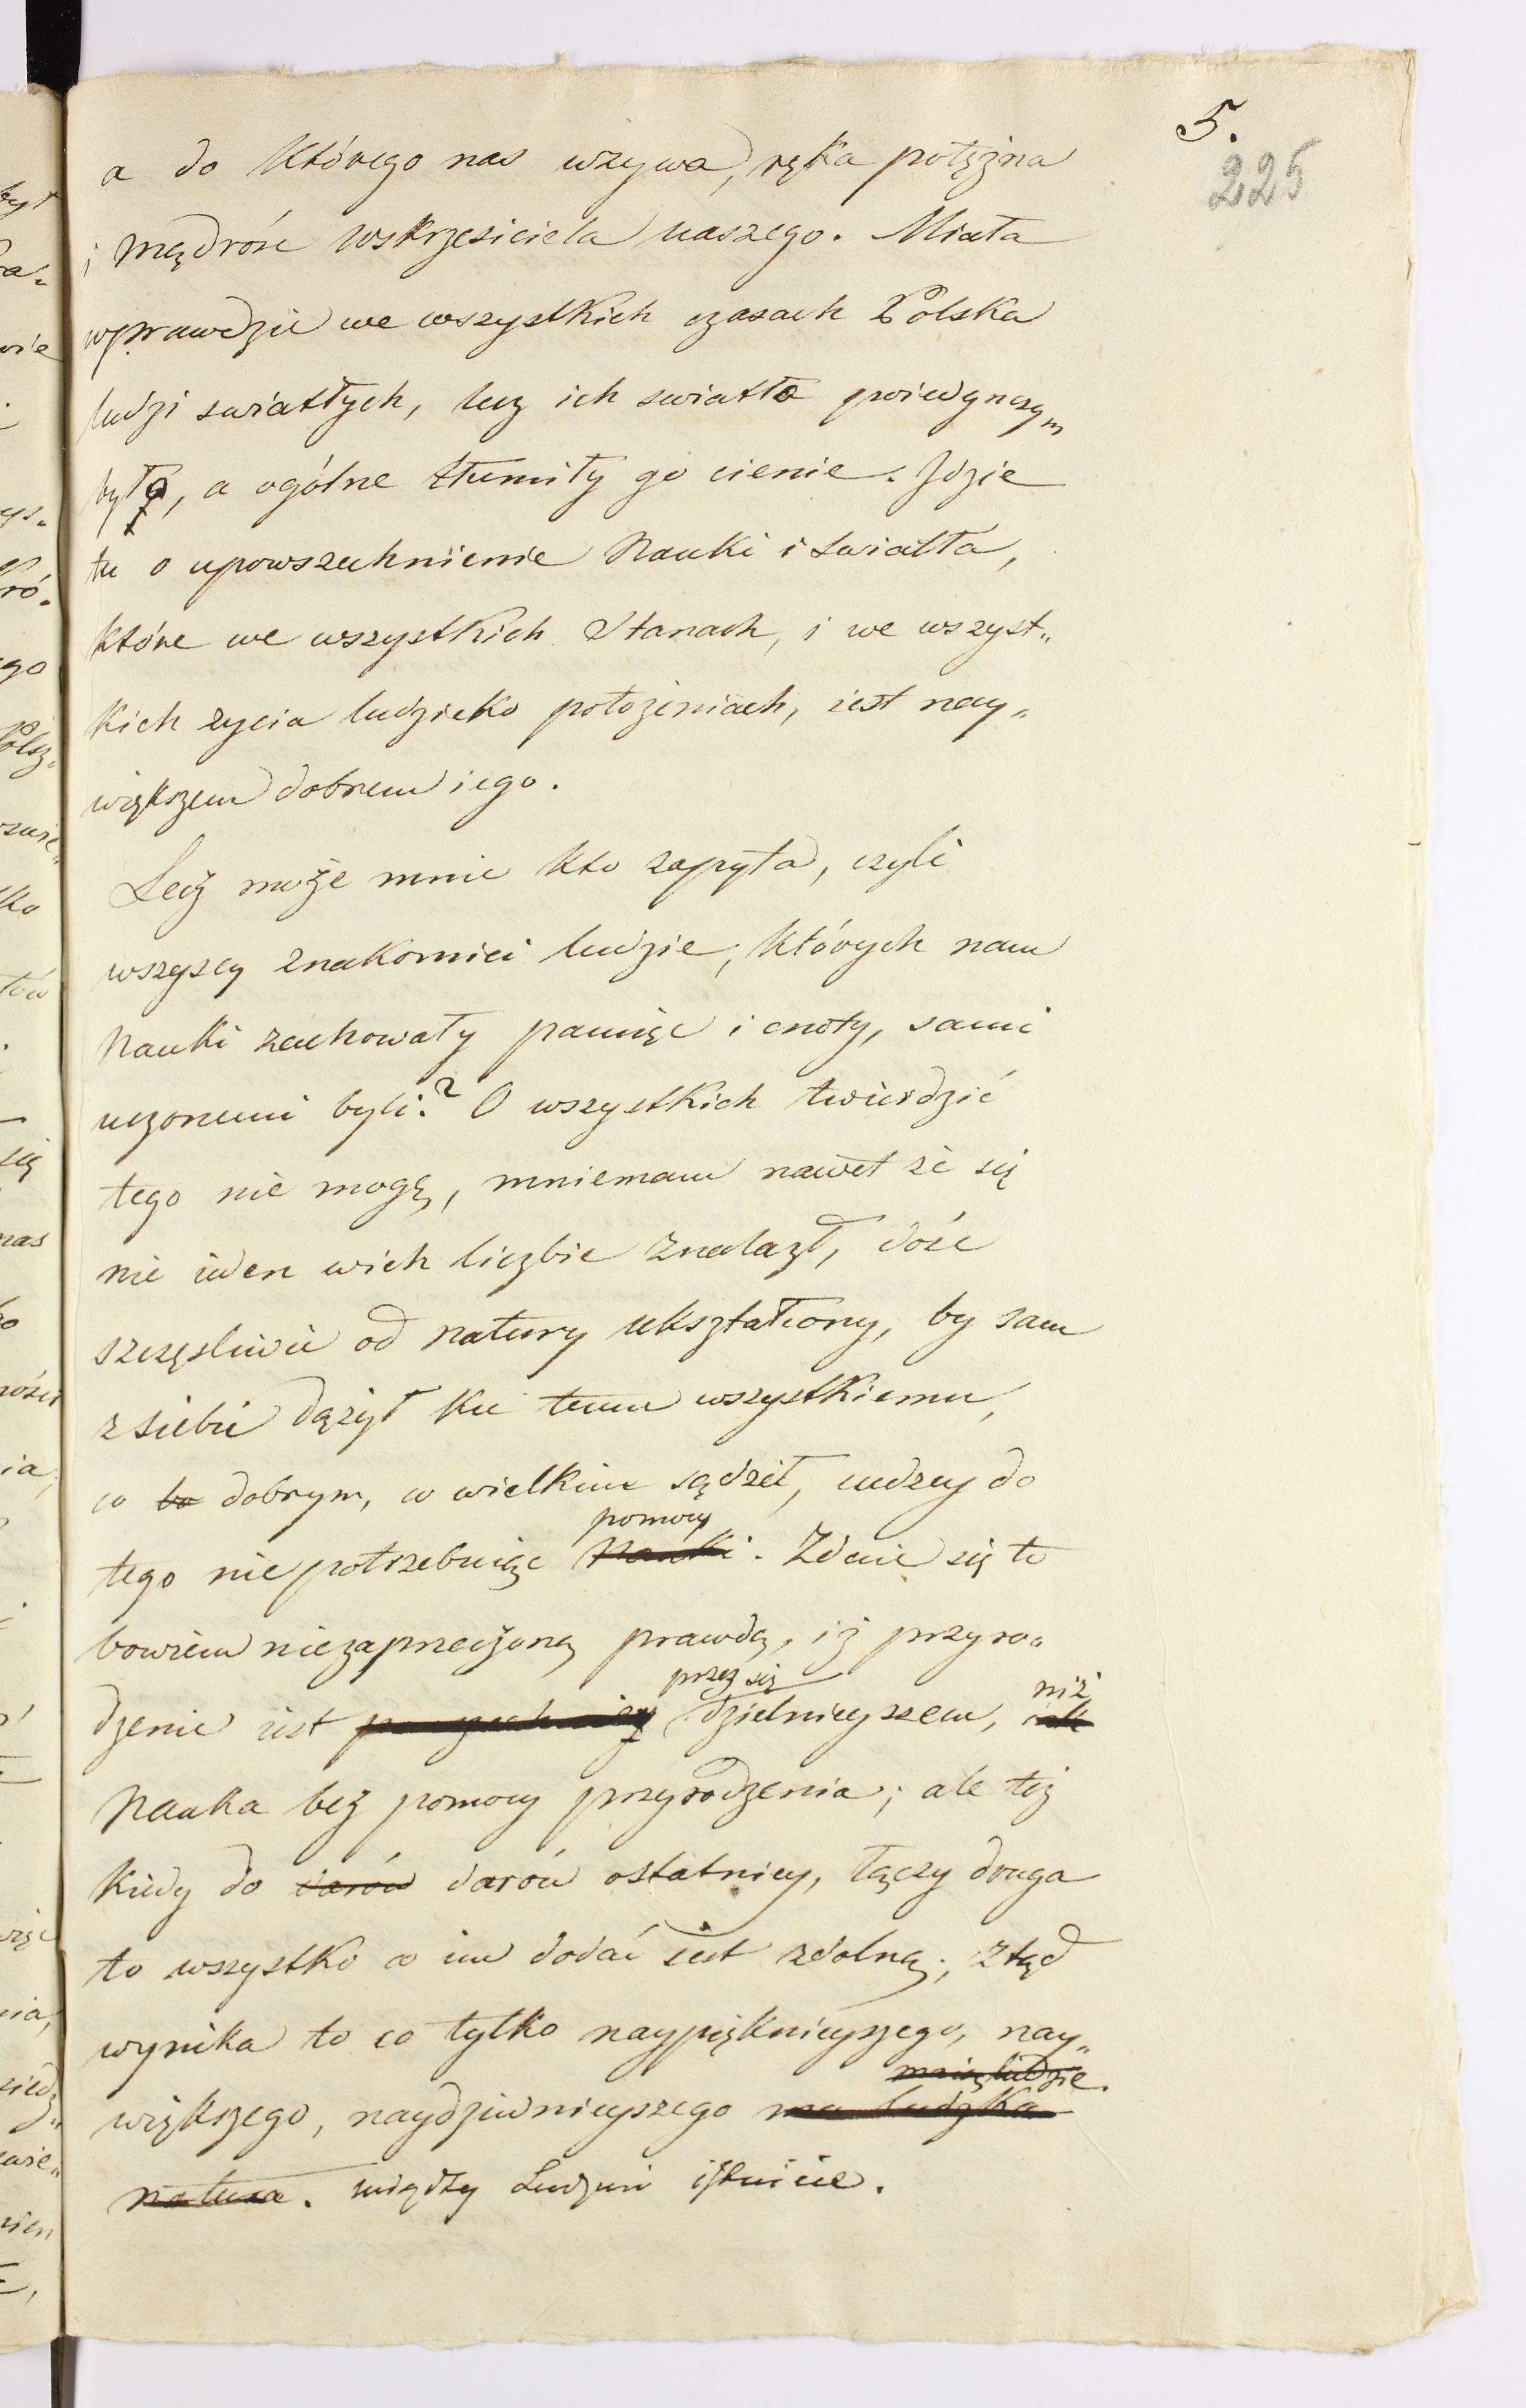 5.
225
a do którego nas wzywa, ręka potężna
i mądrość wskrzesiciela naszego. Miała
wprawdzie we wszystkich czasach Polska
ludzi swiatłych, lecz ich swiatło poiedynczym
było, a ogólne tłumiły go cienie. Idzie
tu o upowszechnienie Nauki i swiatła,
które we wszystkich Stanach, i we wszyst„
kich życia ludzieko położeniach, iest nay„
większem dobrem iego.
Lecz może mnie kto zapyta, czyli
wszyscy znakomici ludzie, których nam
Nauki zachowały pamięć i cnoty, sami
uczonemi byli? O wszystkich twierdzić
tego nie mogę, mniemam nawet że się
nie ieden wich liczbie znalazł, dość
szczęsliwie od natury ukształcony, by sam
z siebie dążył ku temu wszystkiemu,
co to dobrym, co wielkim sądził, cudzey do
pomocy
tego nie potrzebuiąc Nauki. Zdaie się to
bowiem niezaprzeczoną prawdą, iż przyro„
przez się niż
dzenie iest dzielnieyszem,
Nauka bez pomocy przyrodzenia; ale też
kiedy do darów darów ostatniey, łączy druga
to wszystko co im dodać iest zdolną; ztąd
wynika to co tylko naypięknieyszego, nay„
ludzie.
większego, naydziwnieyszego ma ludzka
natura. między Ludzmi istnieie.